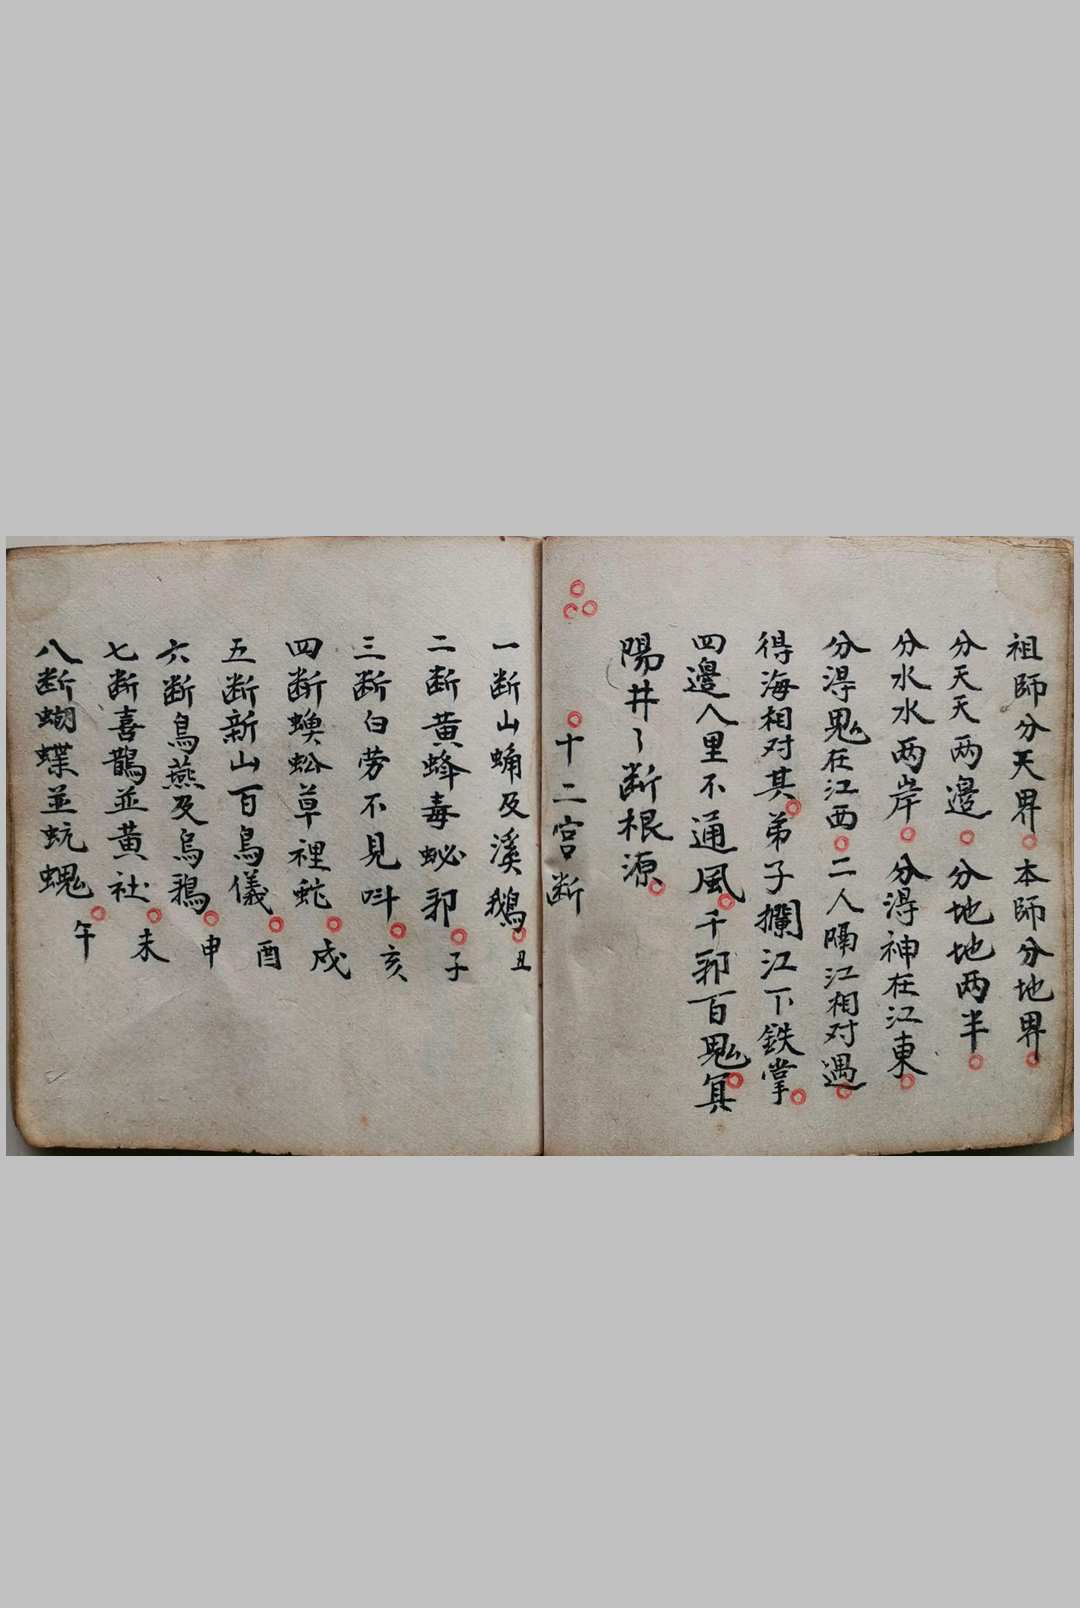 祖師分天界本師分地界
分天天两邉分地地两半
分水水两岸分得神在江東
分得鬼在江西二人隔江相对遇
得海相对其弟子攔江下鉄掌
四邉八里不通風千邪百鬼其
陽井了断根源
十二宫断
一断山蛹及溪鵝丑
二断黄蜂毒蛯邪子
三断白劳不見呌亥
四断蟆蚣草裡蛇戍
五断新山百鳥儀酉
六断鳥燕及烏鴉申
七断喜鵲並黄社未
八断蝴蝶並蚢螝午